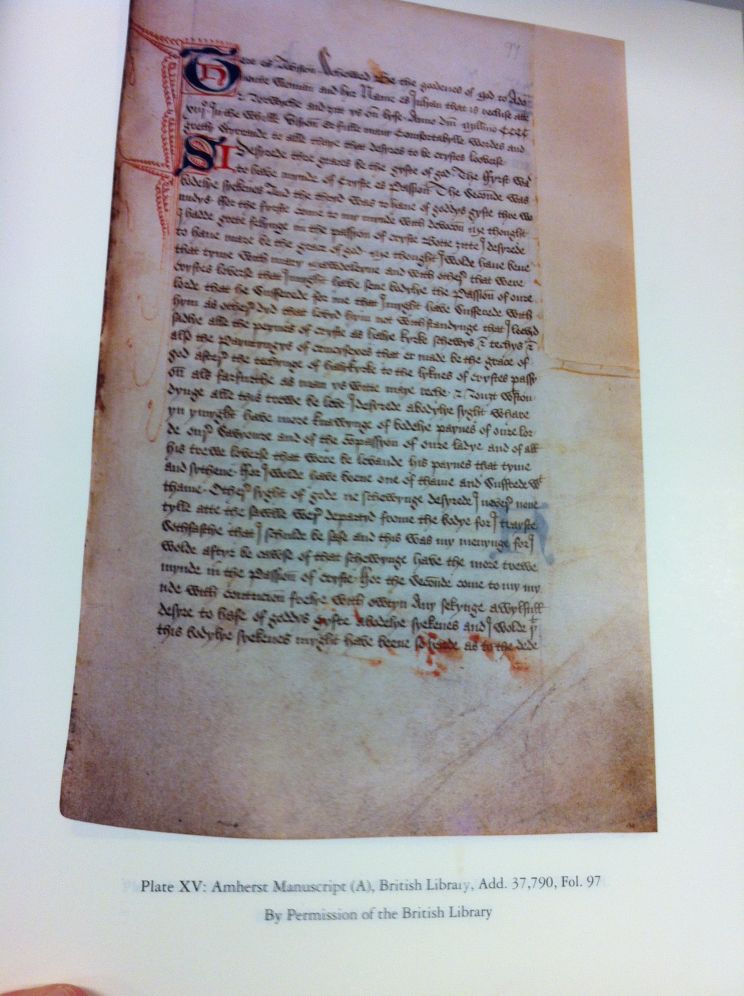 97
There es Avisioun Schewed Be the goodenes of god to Ade
uoute Woman and hir Name es Julyan that is recluse atte
Norwyche and ȝitt ys on lyfe Anno dni millmo CCCC
xiijo In the whilke visyon er fulle many Comfortabylle wordes and
gretly styrrande to alle thaye that desyres to be crystes looverse
I Desyrede thre graces be the gyfte of god The ffyrst was
to have mynde of Cryste es Passion The Secounde was
bodelye syekenes And the thryd was to haue of goddys gyfte thre wo
undys ffor the fyrste come to my mynde with devocon me thought
I hadde grete felynge in the passyon of cryste Botte ȝitte I desyrede
to haue mare be the grace of god me thought I wolde haue bene
that tyme with mary mawdeleyne and with other that were
crystes loverse that I myght have sene bodylye the Passion of oure
lorde that he Sufferede for me that I myght have Sufferede with
hym as other dyd that lovyd hym not withstandynge that I leevyd
sadlye alle the peynes of cryste as halye kyrke schewys & techys &
also the payntyngys of crucyfexes that er made be the grace of
god after the techynge of haly kyrke to the lyknes of crystes passy
on als farfurthe as man ys witte maye reche Nouȝt wtston
dynge alle this trewe be leve I desyrede a bodylye syght whare
yn y myght have more knawynge of bodelye paynes of oure lor
de oure Savyoure and of the compassyon of oure ladye and of alle
his trewe loverse that were be levande his paynes that tyme
and sythene ffor I wolde have beene one of thame and Suffrede wt
thame Other syght of gode ne schewynge desyrede I never none
tylle atte the sawlle were departyd frome the bodye for I trayste
Sothfastlye that I schulde be safe and this was my menynge for I
wolde aftyr be cawse of that schewynge have the more trewe
mynde in the Passion of cryste ffor the Seconde come to my my
nde with contricion frelye with owtyn Any sekynge a wylfull
desyre to hafe of goddys gyfte a bodelye syekenes and I wolde þt
this bodylye syekenes myght have beene so harde as to the dede
Plate XV: Amherst Manuscript (A), British Library, Add. 37,790, Fol. 97
By Permission of the British Library